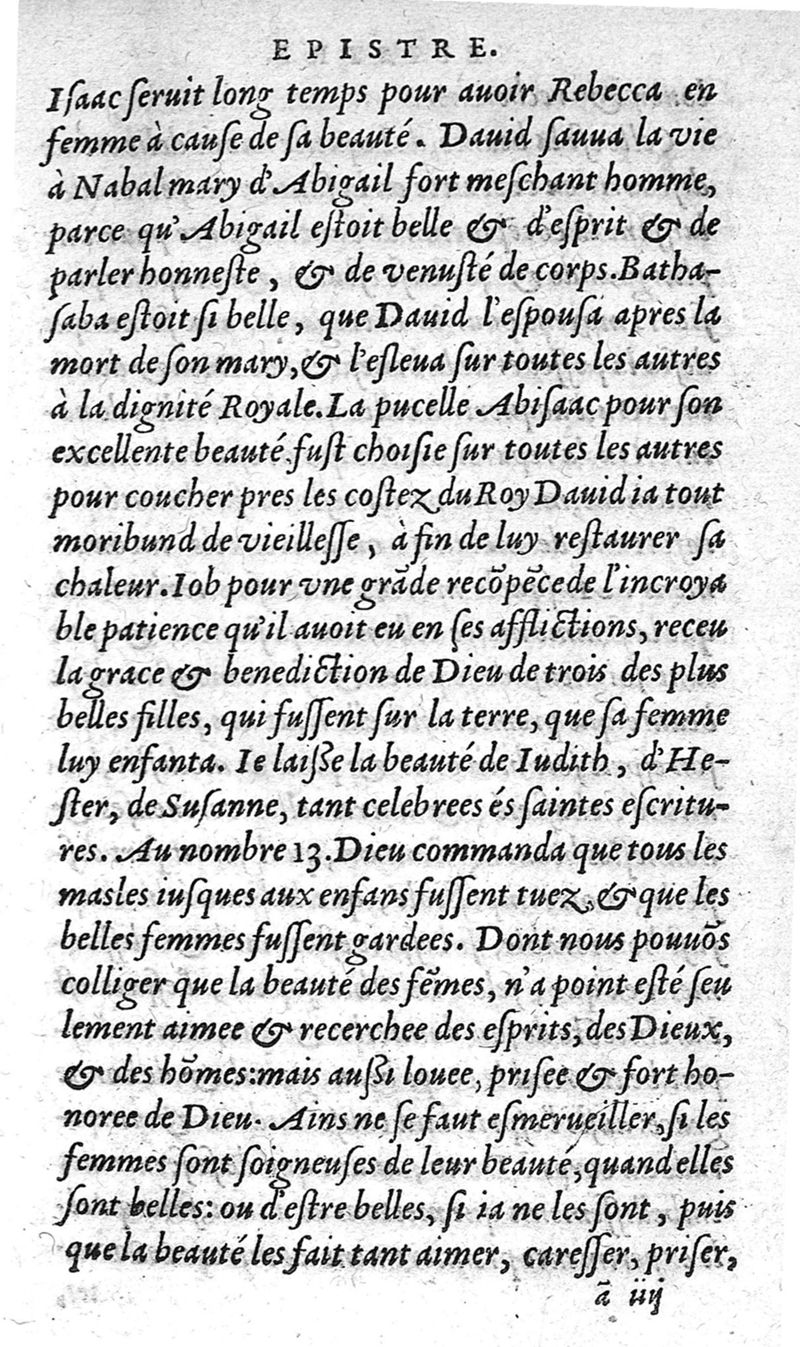 EPISTRE.
Iſaac ſeruit long temps pour auoir Rebecca en
femme à cauſe de ſa beauté. Dauid ſauua la vie
à Nabal mary d'Abigail fort meſchant homme,
parce qu'Abigail eſtoit belle & d'eſprit & de
parler honneſte, & de venuſté de corps. Batha-
ſaba eſtoit ſi belle, que Dauid l'eſpouſa apres la
mort de ſon mary, & l'eſleua ſur toutes les autres
à la dignité Royale. La pucelle Abiſaac pour ſon
excellente beauté fuſt choiſie ſur toutes les autres
pour coucher pres les coſtez du Roy Dauid ia tout
moribund de vieilleſſe, à fin de luy reſtaurer ſa
chaleur. Iob pour vne grāde recōpēce de l'incroya
ble patience qu'il auoit eu en ſes afflictions, receu
la grace & benediction de Dieu de trois des plus
belles filles, qui fuſſent ſur la terre, que ſa femme
luy enfanta. Ie laiſſe la beauté de Iudith, d'He-
ſter, de Suſanne, tant celebrees és ſaintes eſcritu-
res. Au nombre 13. Dieu commanda que tous les
maſles iuſques aux enfans fuſſent tuez, & que les
belles femmes fuſſent gardees. Dont nous pouuōs
colliger que la beauté des fēmes, n'a point eſté ſeu
lement aimee & recerchee des eſprits, des Dieux,
& des hōmes: mais auſſi louee, priſee & fort ho-
noree de Dieu. Ains ne ſe faut eſmerueiller, ſi les
femmes ſont ſoigneuſes de leur beauté, quand elles
ſont belles: ou d'eſtre belles, ſi ia ne les ſont, puis
que la beauté les fait tant aimer, careſſer, priſer,
ā iiij